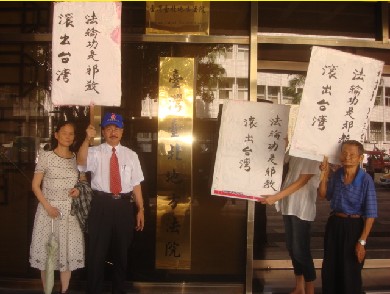 法輪功是邪教
滾出台灣
臺灣臺北地方法院
法輪功是邪教
滾出台灣
法輪功是邪教
滾出台灣